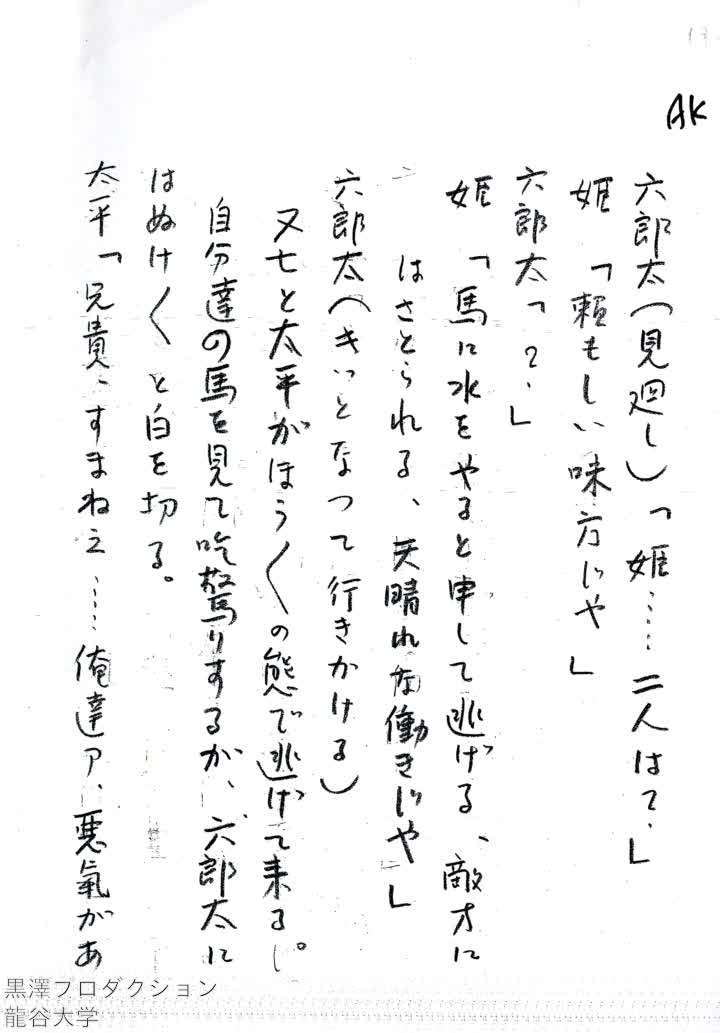 AK
六郎太(見廻し)「姫……二人はて?」
姫「頼もしい味方じや」
六郎太「?」
姫「馬に水をやると申して逃げる、敵方に
はさとられる、天晴れな働きじや」
六郎太(きっとなつて行きかける)
又七と太平がほう〱の態で逃げて来る。
自分達の馬を見て吃驚りするが、六郎太に
はぬけ〱と白を切る。
太平「兄貴、すまねえ……俺達ア、悪氣があ
黒澤プロダクション
龍谷大学